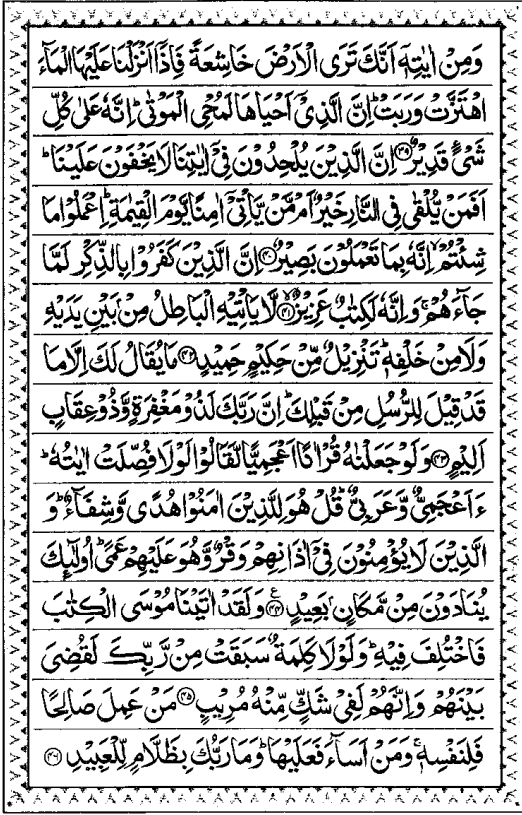 وَمِنْ اٰيٰتِهٖٓ اَنَّكَ تَرَى الْاَرْضَ خَاشِعَةً فَاِذَآ اَنْزَلْنَا عَلَيْهَا الْمَآءَ
اهْتَزَّتْ وَرَبَتْ ؕ اِنَّ الَّذِيْٓ اَحْيَاهَا لَمُحْيِ الْمَوْتٰى ؕ اِنَّهٗ عَلٰى كُلِّ
شَيْءٍ قَدِيْرٌ ﴿۳۹﴾ اِنَّ الَّذِيْنَ يُلْحِدُوْنَ فِيْٓ اٰيٰتِنَا لَا يَخْفَوْنَ عَلَيْنَا ؕ
اَفَمَنْ يُّلْقٰى فِي النَّارِ خَيْرٌ اَمْ مَّنْ يَّاْتِيْٓ اٰمِنًا يَّوْمَ الْقِيٰمَةِ ؕ اِعْمَلُوْا مَا
شِئْتُمْ ۙ اِنَّهٗ بِمَا تَعْمَلُوْنَ بَصِيْرٌ ﴿۴۰﴾ اِنَّ الَّذِيْنَ كَفَرُوْا بِالذِّكْرِ لَمَّا
جَآءَهُمْ ۚ وَاِنَّهٗ لَكِتٰبٌ عَزِيْزٌ ﴿۴۱﴾ ۙ لَّا يَاْتِيْهِ الْبَاطِلُ مِنْۢ بَيْنِ يَدَيْهِ
وَلَا مِنْ خَلْفِهٖ ؕ تَنْزِيْلٌ مِّنْ حَكِيْمٍ حَمِيْدٍ ﴿۴۲﴾ مَا يُقَالُ لَكَ اِلَّا مَا
قَدْ قِيْلَ لِلرُّسُلِ مِنْ قَبْلِكَ ؕ اِنَّ رَبَّكَ لَذُوْ مَغْفِرَةٍ وَّذُوْ عِقَابٍ
اَلِيْمٍ ﴿۴۳﴾ وَلَوْ جَعَلْنٰهُ قُرْاٰنًا اَعْجَمِيًّا لَّقَالُوْا لَوْلَا فُصِّلَتْ اٰيٰتُهٗ ؕ
ءَاَعْجَمِيٌّ وَّعَرَبِيٌّ ؕ قُلْ هُوَ لِلَّذِيْنَ اٰمَنُوْا هُدًى وَّشِفَآءٌ ؕ وَ
الَّذِيْنَ لَا يُؤْمِنُوْنَ فِيْٓ اٰذَانِهِمْ وَقْرٌ وَّهُوَ عَلَيْهِمْ عَمًى ؕ اُولٰٓئِكَ
يُنَادَوْنَ مِنْ مَّكَانٍۢ بَعِيْدٍ ﴿۴۴﴾ ع وَلَقَدْ اٰتَيْنَا مُوْسَى الْكِتٰبَ
فَاخْتُلِفَ فِيْهِ ؕ وَلَوْلَا كَلِمَةٌ سَبَقَتْ مِنْ رَّبِّكَ لَقُضِيَ
بَيْنَهُمْ ؕ وَاِنَّهُمْ لَفِيْ شَكٍّ مِّنْهُ مُرِيْبٍ ﴿۴۵﴾ مَنْ عَمِلَ صَالِحًا
فَلِنَفْسِهٖ ۚ وَمَنْ اَسَآءَ فَعَلَيْهَا ؕ وَمَا رَبُّكَ بِظَلَّامٍ لِّلْعَبِيْدِ ﴿۴۶﴾